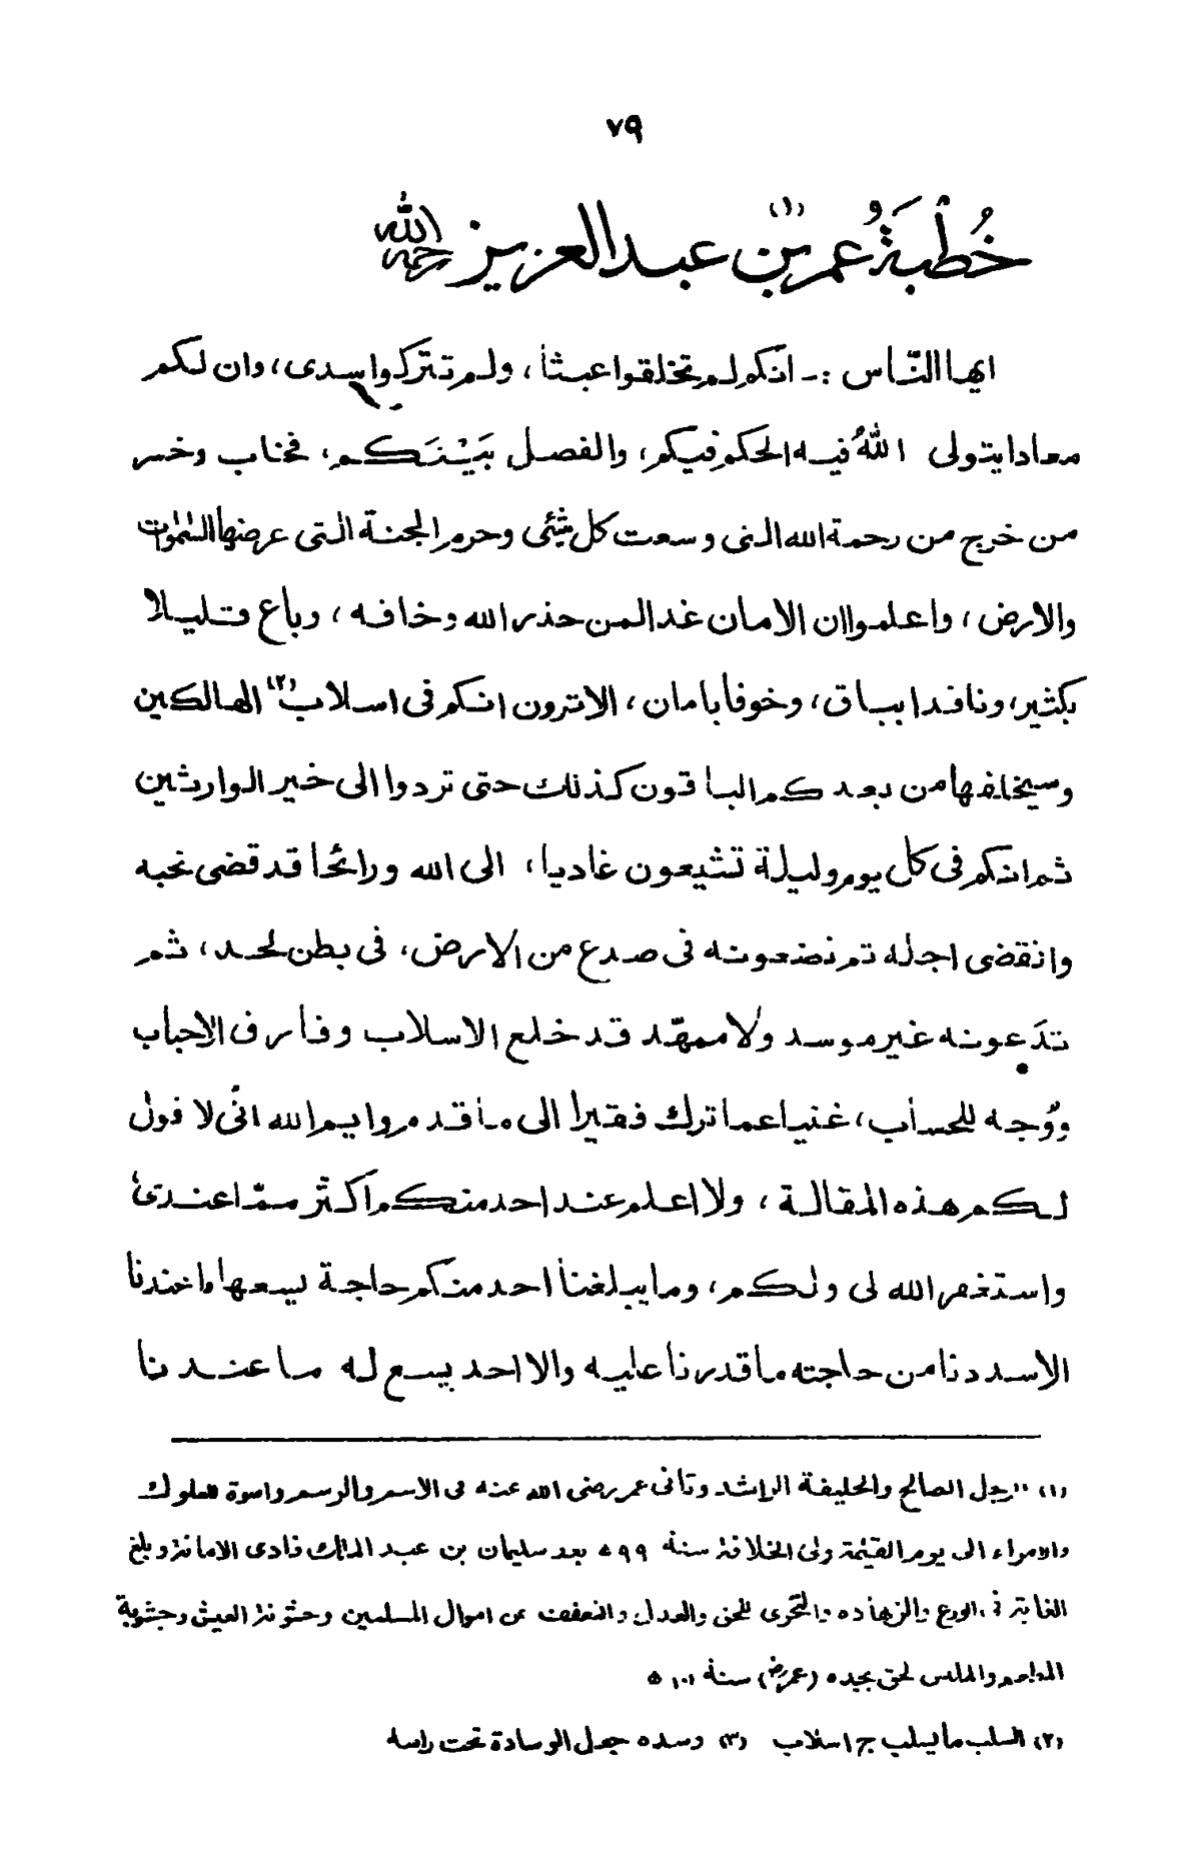 ٧٩
خُطْبَةُ عمر بن (١) عبد العزيز رحمه الله
ايها النّاس :- انكم لم تخلقوا عبثا، ولم تتركوا سدى، وان لكم
معادا يتولى اللهُ فيه الحكم فيكم، والفصل بَيْنَكم، فخاب وخسر
من خرج من رحمة الله التى وسعت كل شيئى وحرم الجنة التى عرضها السموات
والارض، واعلموا ان الامان غدا لمن حذر الله وخافه، وباع قليلا
بكثير، ونافدا بباق، وخوفا بامان، الا ترون انكم فى اسلاب (٢) الهالكين
وسيخلفها من بعد كم الباقون كذلك حتى تردوا الى خير الوارثين
ثم انكم فى كل يوم وليلة تشيعون غاديا، الى الله ورائحا قد قضى نحبه
وانقضى اجله تم تضعونه فى صدع من الارض، فى بطن لحد، ثم
تدَعونه غير موسد ولا ممهّد قد خلع الاسلاب وفارق الاحباب
ووُجه للحساب، غنيا عما ترك فقيرا الى ما قدم وايم الله انّى لا قول
لكم هذه المقالة، ولا اعلم عند احد منكم اكثر ممّا عندى
واستغفر الله لى ولكم، وما يبلغنا احد منكم حاجة ليسعها ما عندنا
الا سددنا من حاجته ما قدرنا عليه والا احد يسع له ما عندنا
(١) الرجل الصالح والخليفة الراشد وثانى عمر رضى الله عنه فى الاسم والرسم واسوة للملوك
والامراء الى يوم القيٰمة ولى الخلافة سنة ٩٩ ه بعد سليمان بن عبد الملك فادى الامانة وبلغ
الغاية فى الورع والزهاده والتحرى للحق والعدل والتعفف عن اموال المسلمين وخشونة العيش وجشوبة
المطعم والملبس لحق بجده (عمر رض) سنة ١٠١ ه
(٢) السلب ما يسلب ج اسلاب (٣) وسده جعل الوسادة تحت راسه